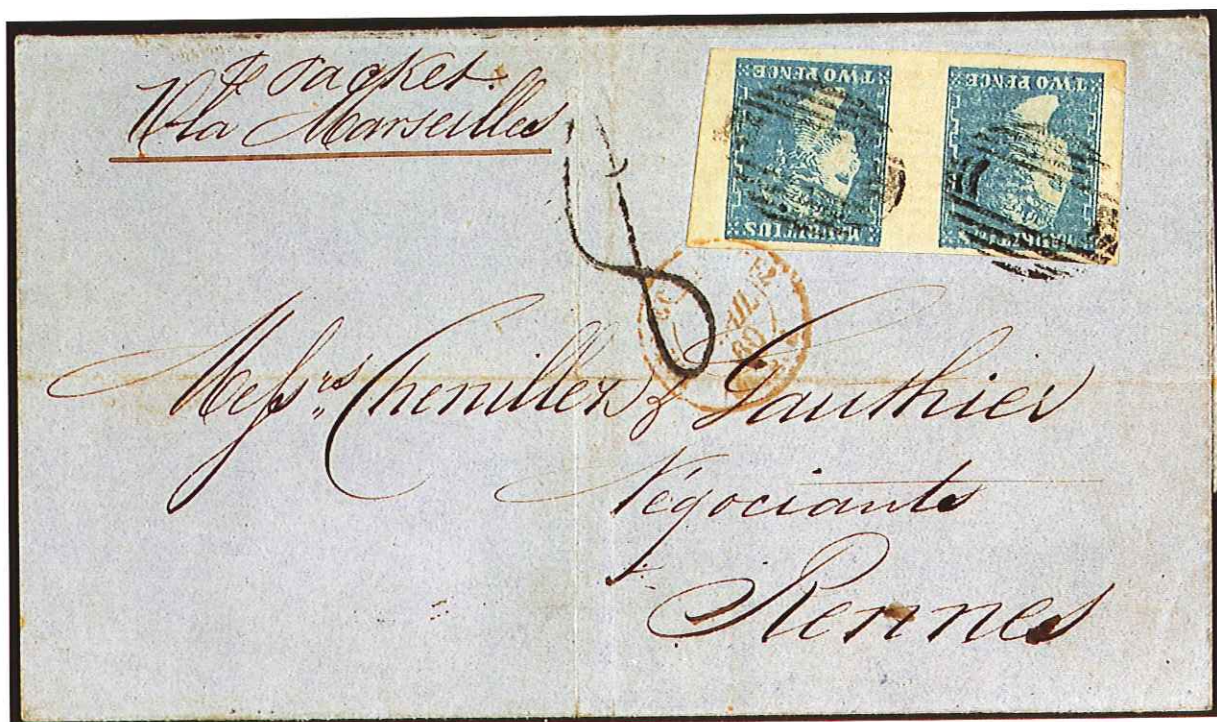 Packet
Via Marseilles
TWO PENCE
MAURITIUS
TWO PENCE
MAURITIUS
8
60
Messrs. Chenillez & Gauthier
Négociants
Rennes